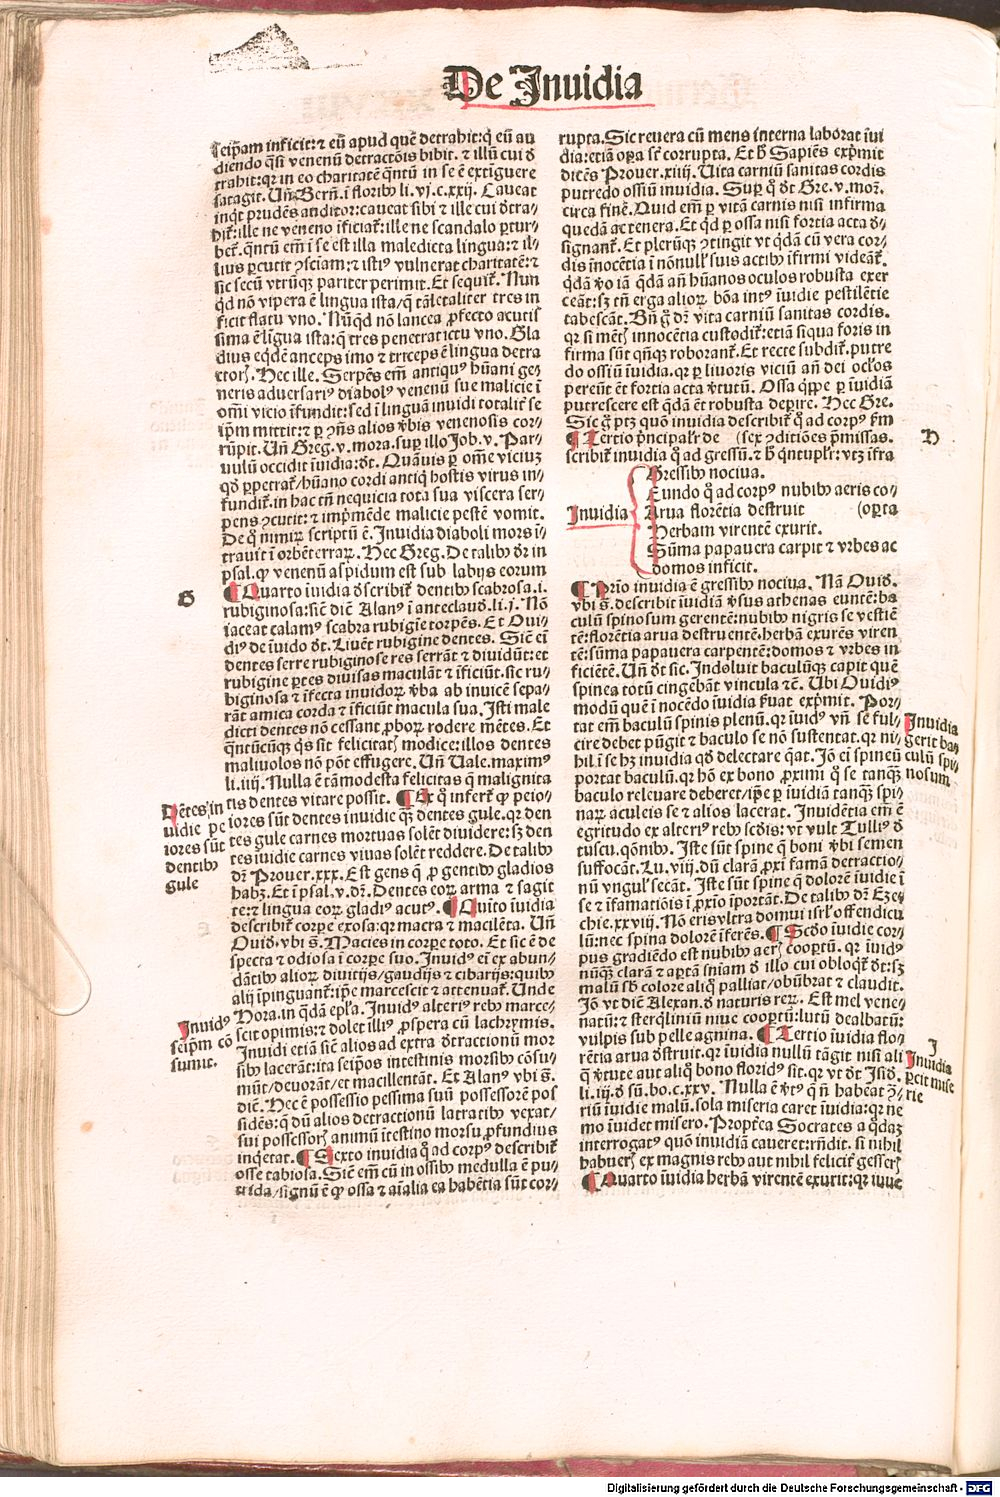 De Inuidia
seip̄am inficit: ⁊ eū apud quē detrahit: q̄ eū au
diendo q̄si venenū detractōis bibit. ⁊ illū cui d̄
trahit: qr in eo charitatē q̄ntū in se ē extiguere
satagit. Uñ Bern̄. ī florib⁹ li. vj. c. xxij. Caueat
inq̄t prudēs auditor: caueat sibi ⁊ ille cui d̄tra/
hit̄: ille ne veneno īficiat̄: ille ne scandalo ꝑtur/
bet̄. q̄ntū em̄ ī se est illa maledicta lingua: ⁊ il/
lius ꝑcutit ꝯsciam: ⁊ isti⁹ vulnerat charitatē: ⁊
sic secū vtrūq; pariter perimit. Et sequit̄. Nun
qd nō vipera ē lingua ista/ q̄ tā letaliter tres in
ficit flatu vno. Nūq̄d nō lancea ꝓfecto acutis
sima ē līgua ista: q̄ tres penetrat ictu vno. Gla
dius eq̄dē anceps imo ⁊ triceps ē lingua detra
ctor̄. Hec ille. Serpēs em̄ antiqu⁹ hūani gen̄
neris aduersari⁹ diabol⁹ venenū sue malicie ī
om̄i vicio īfundit: sed ī linguā inuidi totalit̄ se
ip̄m mittit: ⁊ ꝑ ꝯn̄s alios v̄bis venenosis cor/
rūpit. Uñ Greg. v. mora. sup illo Job. v. Par/
uulū occidit īuidia: d̄t. Quāuis ꝑ om̄e viciuȝ
qd̄ ꝑpetrat̄/ hūano cordi antiq̄ hostis virus in/
fundit̄. in hac tn̄ nequicia tota sua viscera ser/
pens ꝯcutit: ⁊ imp̄mēde malicie pestē vomit.
De q̄ nimiꝝ scriptū ē. Inuidia diaboli mors ī/
trauit ī orbē terraꝝ. Hec Greg. De talib⁹ d̄r in
psal. ꝙ venenū aspidum est sub labijs eorum
¶ Quarto īuidia d̄scribit̄ dentib⁹ scabrosa. i.
G
rubiginosa: sic̄ dic̄ Alan⁹ ī anteclaud̄. li. j. Nō
iaceat calam⁹ scabra rubigīe torpēs. Et Oui/
di⁹ de īuido d̄t. Liuēt rubigine dentes. Sic̄ em̄
dentes serre rubiginose res serrāt ⁊ diuidūt: et
rubigine ꝑtes diuisas maculāt ⁊ īficiūt. sic ru/
biginosa ⁊ īfecta inuidoꝝ v̄ba ab inuicē sepa/
rāt amica corda ⁊ īficiūt macula sua. Isti male
dicti dentes nō cessant ꝓboꝝ rodere mētes. Et
q̄ntūcūq; q̄s sit felicitat̄ modice: illos dentes
maliuolos nō pōt effugere. Uñ Uale. maxim⁹
li. iiij. Nulla ē tā modesta felicitas q̄ malignita
tis dentes vitare possit. ¶ Ex q̄ infert̄ ꝙ peio/
Dētes in
uidie pe
iores sūt
dentib⁹
gule
iores sūt dentes inuidie q̄ȝ dentes gule. qr den
tes gule carnes mortuas solēt diuidere: sȝ den
tes īuidie carnes viuas solēt reddere. De talib⁹
dr̄ Prouer. xxx. Est gens q̄ ꝓ gentib⁹ gladios
habȝ. Et ī psal. v. dr̄. Dentes eoꝝ arma ⁊ sagit
te: ⁊ lingua eoꝝ gladi⁹ acut⁹. ¶ Quīto īuidia
describit̄ corꝑe exosa: qr macra ⁊ macilēta. Uñ
Ouid̄. vbi s̄. Macies in corꝑe toto. Et sic ē de
specta ⁊ odiosa ī corꝑe suo. Inuid⁹ em̄ ex abun/
dātib⁹ alioꝝ diuitijs/ gaudijs ⁊ cibarijs: quib⁹
alij īpinguant̄: ip̄e marcescit ⁊ attenuat̄. Unde
Hora. in q̄dā ep̄la. Inuid⁹ alteri⁹ reb⁹ marce/
Inuid⁹
seip̄m cō
sumit.
scit opimis: ⁊ dolet illi⁹ ꝓspera cū lachrymis.
Inuidi etiā sic̄ alios ad extra d̄tractionū mor
sib⁹ lacerāt: ita seip̄os intestinis morsib⁹ cōsu/
mūt/ deuorāt/ et macillentāt. Et Alan⁹ vbi s̄.
dic̄. Hec ē possessio pessima suū possessorē pos
sidēs: q̄ dū alios detractionū latratib⁹ vexat/
sui possessor̄ animū ītestino morsu ꝓfundius
inq̄etat. ¶ Sexto inuidia q̄ ad corp⁹ describit̄
osse tabiosa. Sic̄ em̄ cū in ossib⁹ medulla ē pu/
trida/ signū ē ꝙ ossa ⁊ aīalia ea habētia sūt cor/
rupta. Sic reuera cū mens interna laborat īui
dia: etiā oꝑa sc̄ corrupta. Et h̄ Sapiēs exp̄mit
dicēs Prouer. xiiij. Uita carniū sanitas cordis
putredo ossiū inuidia. Suꝑ q̄ d̄t Gre. v. mor̄.
circa finē. Quid em̄ ꝑ vitā carnis nisi infirma
quedā ac tenera. Et qd ꝑ ossa nisi fortia acta d̄/
signant̄. Et pleruq; ꝯtingit vt q̄dā cū vera cor/
dis īnocētia ī nōnull̄ suis actib⁹ īfirmi videāt̄.
q̄dā v̄o iā q̄dā an̄ hūanos oculos robusta exer
ceāt: sȝ tn̄ erga alioꝝ bōa int⁹ īuidie pestilētie
tabescāt. Bn̄ ḡ d̄r vita carniū sanitas cordis.
qr si mēt̄ innocētia custodit̄: etiā siqua foris in
firma sūt q̄ñq; roborant̄. Et recte subdit̄. putre
do ossiū īuidia. qr ꝑ liuoris viciū an̄ dei oc̄los
pereūt ēt fortia acta v̄tutū. Ossa q̄ꝑpe ꝑ īuidiā
putrescere est q̄dā ēt robusta deꝑire. Hec Gre.
Sic ḡ ptȝ quō inuidia describit̄ q̄ ad corp⁹ ẜm
¶ Tertio p̄ncipalr̄ de (sex ꝯditiōes p̄missas.
H
scribit̄ inuidia q̄ ad gressū. ⁊ h̄ q̄ntuplr̄: vtȝ īfra
Inuidia
Gressib⁹ nociua.
Eundo q̄ ad corp⁹ nubib⁹ aeris co/
Arua florētia destruit (oꝑta
Herbam virentē exurit.
Sūma papauera carpit ⁊ vrbes ac
domos inficit.
¶ Prīo inuidia ē gressib⁹ nociua. Nā Ouid̄.
vbi s̄. describit īuidiā v̄sus athenas euntē: ba
culū spinosum gerentē: nubib⁹ nigris se vestiē
tē: florētia arua destruentē. herbā exurēs viren
tē: sūma papauera carpentē: domos ⁊ vrbes in
ficiētē. Uñ d̄t sic. Indoluit baculūq; capit quē
spinea totū cingebāt vincula ⁊c̄. Ubi Ouidi⁹
modū quē ī nocēdo īuidia ẜuat exp̄mit. Por/
tat em̄ baculū spinis plenū. qr īuid⁹ vn̄ se ful/
Inuidia
gerit ba
culū spi
nosum.
cire debet pūgit ⁊ baculo se nō sustentat. qr ni/
hil ī se hȝ inuidia qd̄ delectare q̄at. Jō em̄ spineū
portat baculū. qr hō ex bono ꝓximi q̄ se tanq̄ȝ
baculo releuare deberet/ ip̄e ꝑ īuidiam tanq̄ȝ spi/
naꝝ aculeis se ⁊ alios lacerat. Inuidētia em̄ ē
egritudo ex alteri⁹ reb⁹ scd̄is: vt vult Tulli⁹ d̄
tuscu. q̄onib⁹. Iste sūt spine q̄ boni v̄bi semen
suffocāt. Lu. viij. dū clarā ꝓxi famā detractio/
nū vngul̄ secāt. Iste sūt spine q̄ dolorē īuidie ī
se ⁊ īfamatiōis ī ꝓxīo īportāt. De talib⁹ dr̄ Eze/
chie. xxviij. Nō eris vltra domui isrl̄ offendicu
lū: nec spina dolorē īferēs. ¶ Scd̄o īuidie cor/
pus gradiēdo est nubib⁹ aer̄ cooꝑtū. qr īuid⁹
nūq̄ȝ clarā ⁊ aꝑtā sn̄iam d̄ illo cui obloq̄t̄ d̄t: sȝ
malū sb̄ colore aliq̄ palliat/ obūbrat ⁊ claudit.
Jō vt dic̄ Alexan. d̄ naturis reꝝ. Est mel vene/
natū: ⁊ sterq̄liniū niue cooꝑtū: lutū dealbatū:
vulpis sub pelle agnina. ¶ Tertio īuidia flo/
rētia arua d̄struit. qr īuidia nullū tāgit nisi ali
I
Inuidia
ꝑcit mise
rie
q̄ v̄tute aut aliq̄ bono florid⁹ sit. qr vt d̄t Isid̄.
li. iij. d̄ sū. bo. c. xxv. Nulla ē v̄t⁹ q̄ n̄ habeat ꝯ/
riū īuidie malū. sola miseria caret īuidia: qr ne
mo īuidet misero. Propt̄ea Socrates a q̄daȝ
interrogat⁹ quō inuidiā caueret: rn̄dit. si nihil
habuer̄ ex magnis reb⁹ aut nihil felicit̄ gesser̄
¶ Quarto īuidia herbā virentē exurit: qr iuue
Digitalisierung gefördert durch die Deutsche Forschungsgemeinschaft - DFG